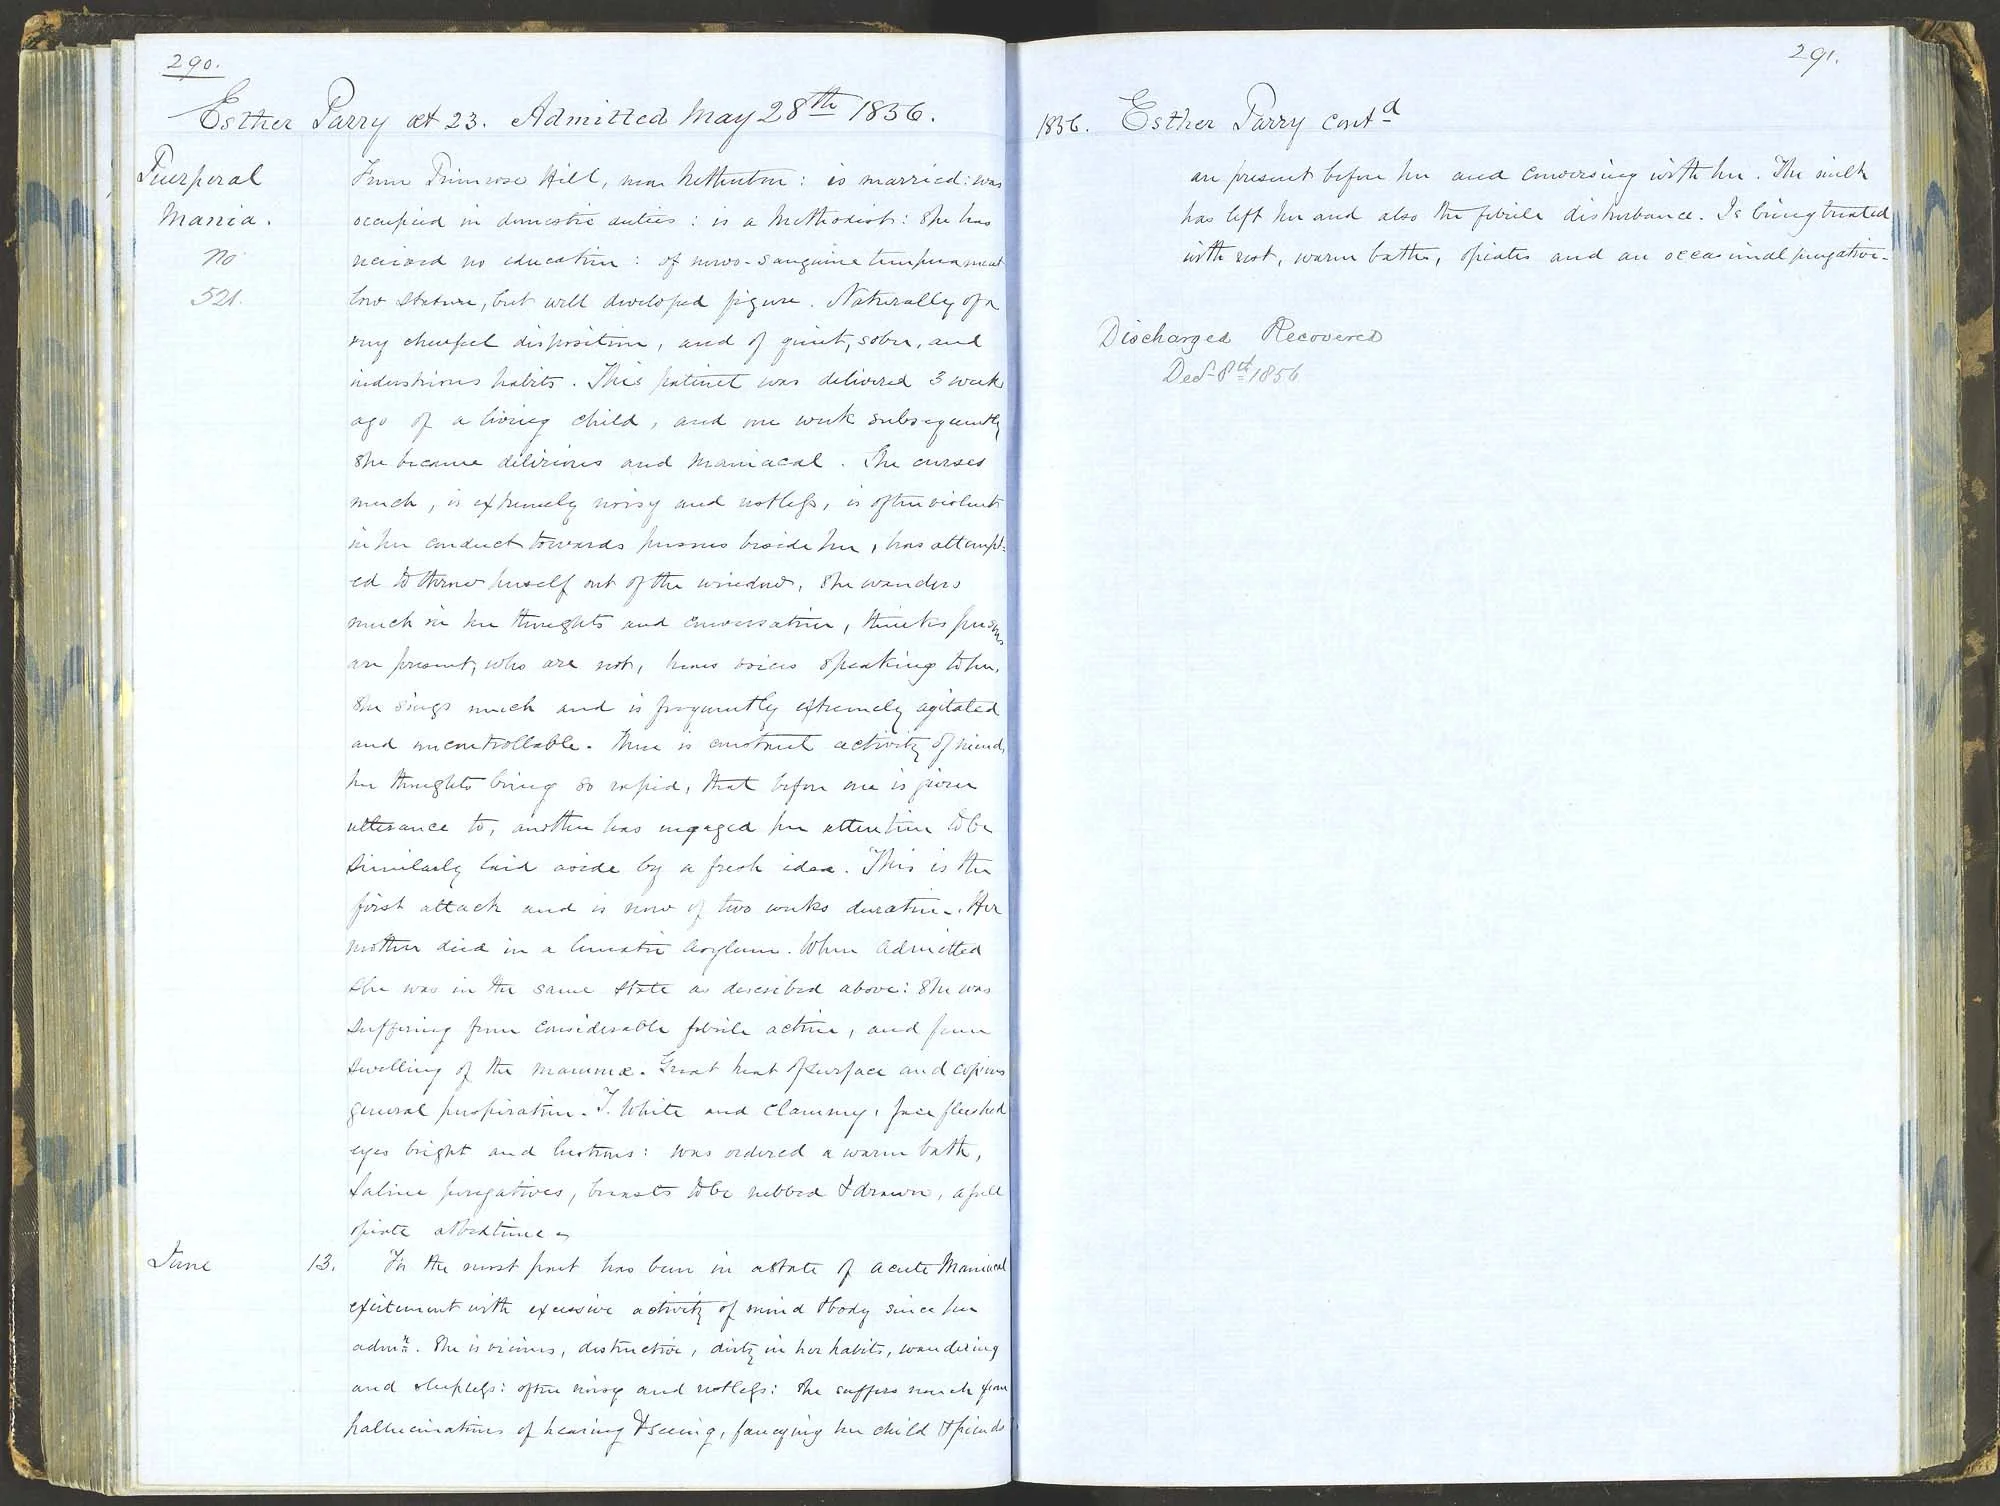 290.
Esther Parry æt 23. Admitted May 28th 1856.
Puerperal
Mania.
No
521.
From Primrose Hill, near Netherton: is married: was
occupied in domestic duties: is a Methodist: She has
received no education: of nervo-sanguine temperament
low stature, but well developed figure. Naturally of a
very cheerful disposition, and of quiet, sober, and
industrious habits. This patient was delivered 3 weeks
ago of a living child, and one week subsequently
she became delirious and maniacal. She curses
much, is extremely noisy and restless, is often violent
in her conduct towards persons beside her, has attempt=
ed to throw herself out of the window, She wanders
much in her thoughts and conversation, thinks persons
are present, who are not, hears voices speaking to her.
She sings much and is frequently extremely agitated
and uncontrollable. There is constant activity of mind,
her thoughts being so rapid, that before one is given
utterance to, another has engaged her attention to be
similarly laid aside by a fresh idea. This is the
first attack and is now of two weeks duration. Her
mother died in a lunatic Asylum. When Admitted
She was in the same state as described above: She was
suffering from considerable febrile action, and from
swelling of the mammæ. Great heat of surface and copious
general perspiration. T. White and clammy, face flushed
eyes bright and lustrous: was ordered a warm bath,
Saline purgatives, breasts to be rubbed & drawn, a full
opiate at bedtime
June 13. For the most part has been in a state of acute Maniacal
excitement with excessive activity of mind & body since her
admn. She is vicious, destructive, dirty in her habits, wandering
and sleepless: often noisy and restless: She suffers much from
hallucinations of hearing & seeing, fancying her child & friends
291.
1856. Esther Parry contd
are present before her and conversing with her. The milk
has left her and also the febrile disturbance. Is being treated
with rest, warm baths, opiates and an occasional purgative.
Discharged Recovered
Decr 8th 1856